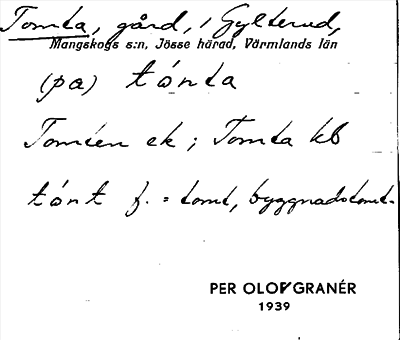 Tomta, gård, i Gylterud,
Mangskogs s:n, Jösse härad, Värmlands län
(pa) tónta
Tomten ek; Tomta kb
tónt f. = tomt, byggnadstomt.
PER OLOF GRANÉR
1939